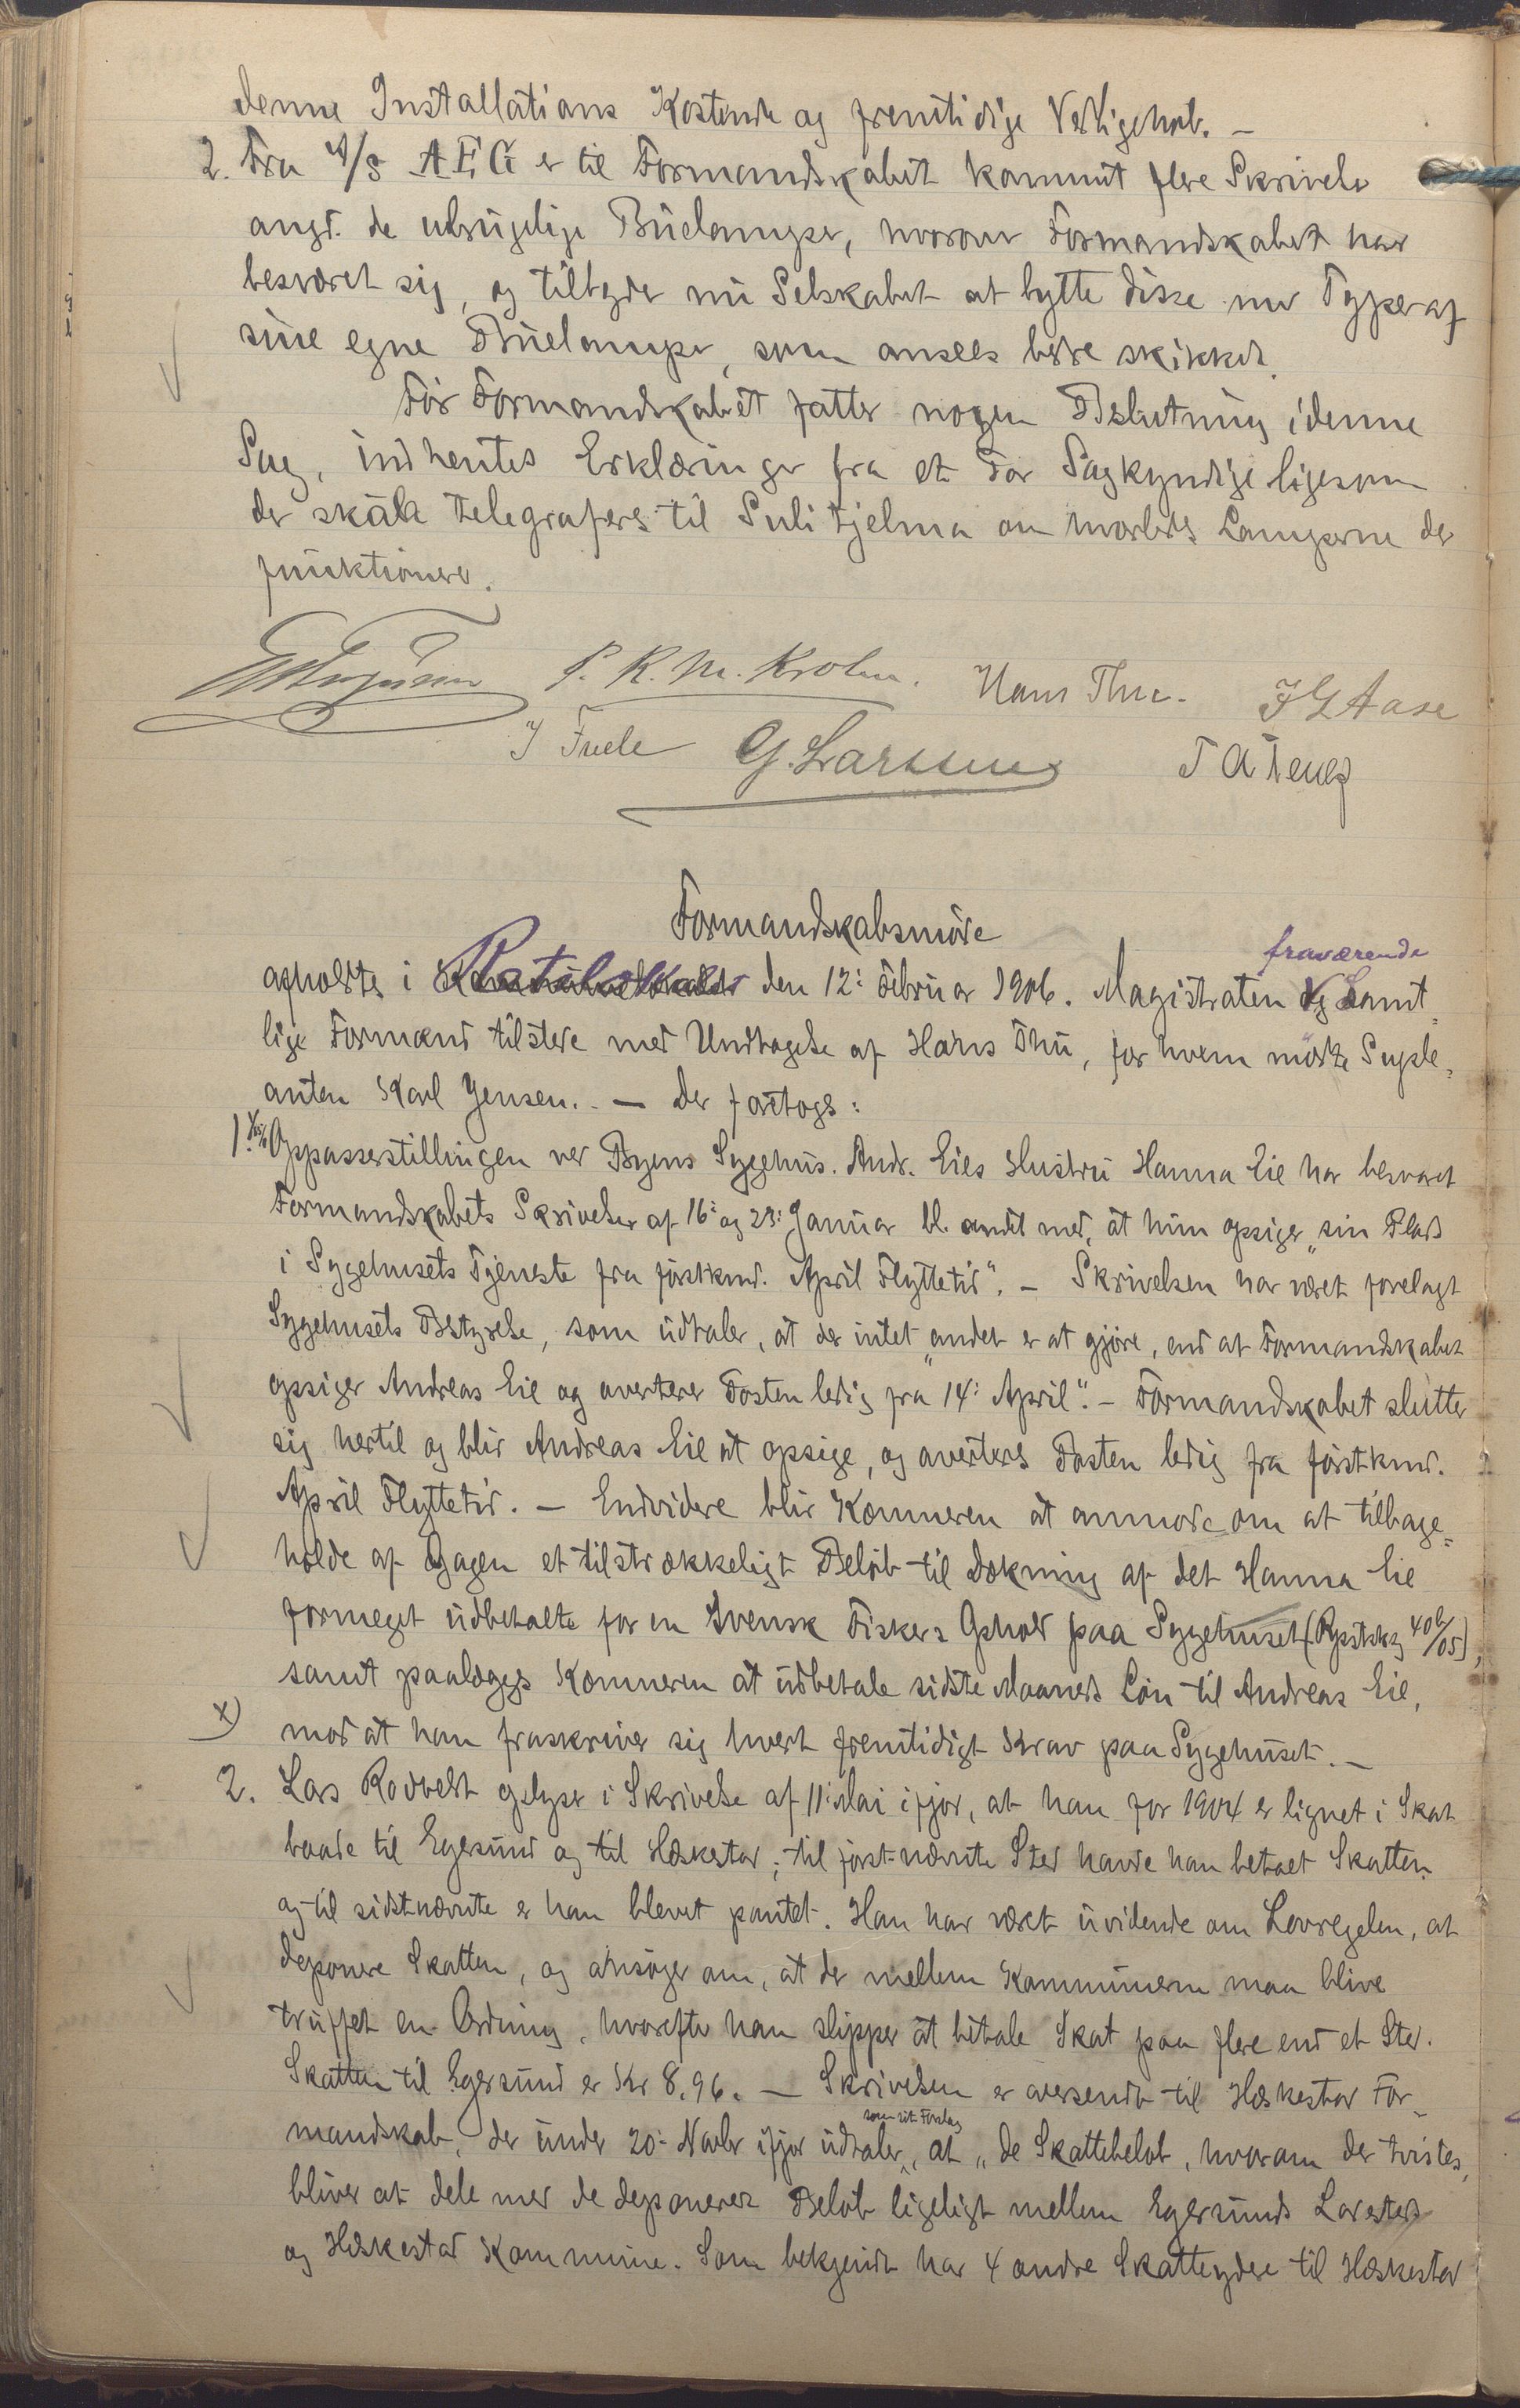 denne Installations Kostende og fremtidige Vedligehold. –
2. Fra A/S AEG er til Formandskabet kommet flere Skrivelser
angd. de ubrugelige Buelamper, hvorover Formandskabet har
besværet sig, og tilbyder nu Selskabet at bytte disse mod Typer af
sine egne Buelamper, som ansees bedre skikket.
Før Formandskabet fatter nogen Beslutning i denne
Sag, indhentes Erklæringer fra et Par Sagkyndige ligesom
der skåle telegraferes til Sulitjelma om hvorledes Lamperne der
funktionerer.
P. K. M. Krohn. Hans Thu. I G Aase
G. Larsen
Formandskabsmøde
fraværende
afholdtes i Raadhuslokalet den 12: Februar 1906. Magistraten Samt-
lige Formænd tilstede med Undtagelse af Hans Thu, for hvem mødte Supple-
anten Karl Jensen. – Der foretoges:
1. Oppasserstillingen ved Byens Sygehus. Andr. Eies Hustru Hanna Eie har besvaret
Formandskabets Skrivelser af 16: og 23: Januar bl. andet med, at hun opsiger „sin Plads
i Sygehusets Tjeneste fra førstkmd. April Flyttetid". – Skrivelsen har været forelagt
Sygehusets Bestyrelse, som udtaler, at der intet „andet er at gjøre, end at Formandskabet
opsiger Andreas Eie og averterer Posten ledig fra 14: April". – Formandskabet slutter
sig hertil og blir Andreas Eie at opsige, og averteres Posten ledig fra førstkmd.
April Flyttetid. – Endvidere blir Kæmneren at anmode om at tilbage-
holde af Gagen et tilstrækkeligt Beløb til Dækning af det Hanna Eie
formeget udbetalte for en Svensk Fiskers Ophold paa Sygehuset (Kopibog 406/05),
samt paalægges Kæmneren at udbetale sidste Maaneds Løn til Andreas Eie,
x) mod at han fraskriver sig hvert fremtidigt Krav paa Sygehuset. –
2. Lars Rodvelt oplyser i Skrivelse af 11: Mai ifjor, at han for 1904 er lignet i Skat
baade til Egersund og til Heskestad; til førstnævnte Sted havde han betaet Skatten
og til sidstnævnte er han blevet pantet. Han har været uvidende om Lovregelen, at
deponere Skatten, og ansøger om, at der mellem Kommunerne maa blive
truffet en Ordning, hvorefter han slipper at betale Skat paa flere end et Sted.
Skatten til Egersund er Kr 8,96. – Skrivelsen er oversendt til Heskestad For-
som sit Forslag
mandskab, der under 20: Novbr ifjor udtaler, at „de Skattebeløb, hvorom der tvistes,
bliver at dele med de deponerede Beløb ligeligt mellem Egersunds Ladested
og Heskestad Kommune. Som bekjendt har 4 andre Skatteydere til Heskestad